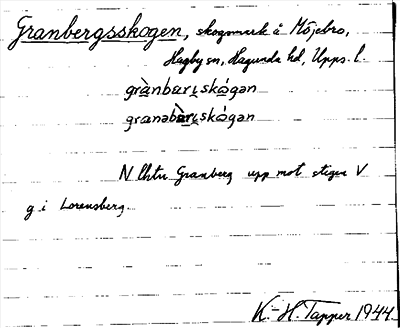 Granbergsskogen, skogsmark å Möjebro,
Hagby sn, Hagunda hd, Upps. l.
grànbarɩskógən
granəbàrɩskógən
N lhtn Granberg upp mot stigen V
g i Lorensberg.
K.-H. Tapper 1944.